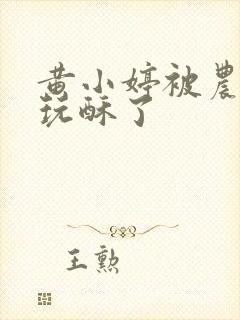 黄小婷被農
玩酥了
王勲